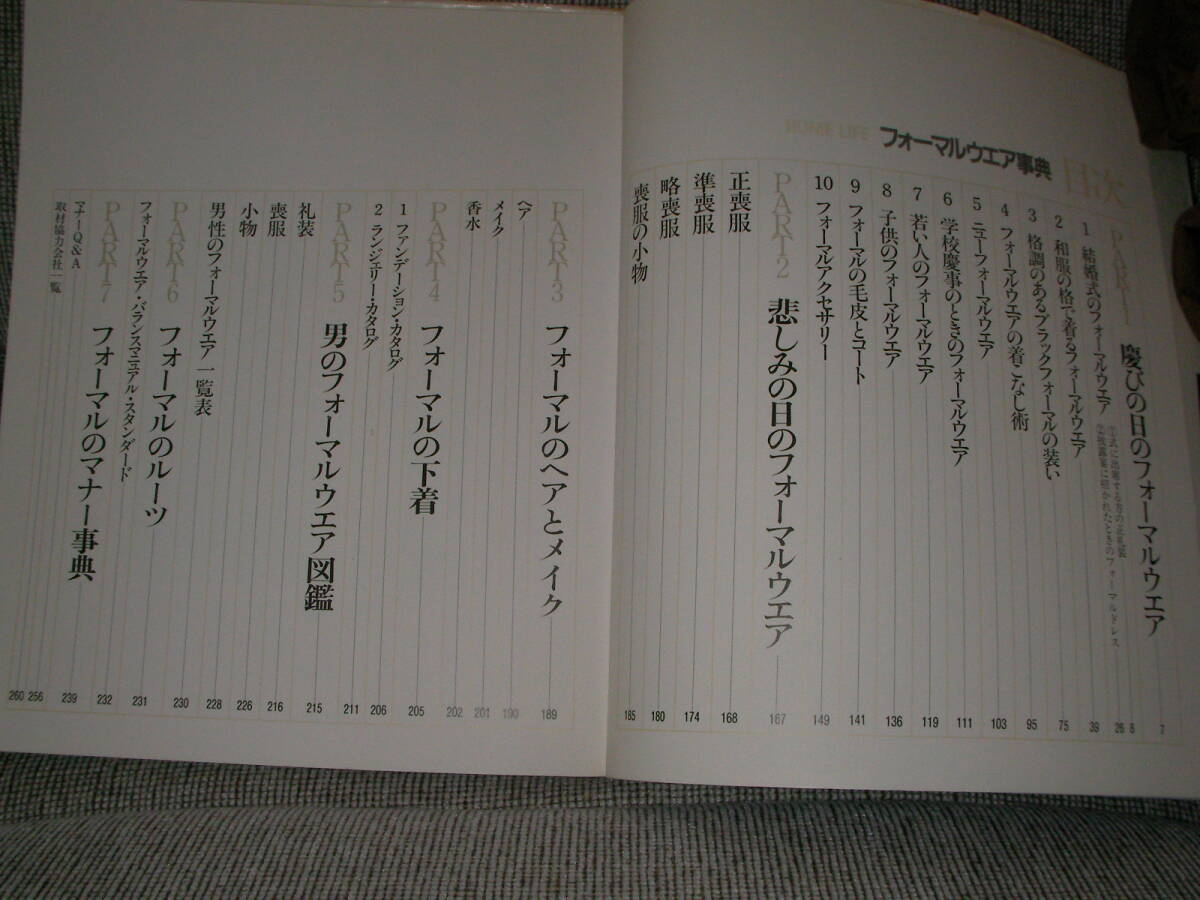 HOME LIFE フォーマルウエア事典 目次
PART1 慶びの日のフォーマルウエア 7
1 結婚式のフォーマルウエア
①式に出席する方の正礼装 8
②披露宴に招かれたときのフォーマルドレス 26
2 和服の格で着るフォーマルウエア 39
3 格調のあるブラックフォーマルの装い 75
4 フォーマルウエアの着こなし術 95
5 ニューフォーマルウエア 103
6 学校慶事のときのフォーマルウエア 111
7 若い人のフォーマルウエア 119
8 子供のフォーマルウエア 136
9 フォーマルの毛皮とコート 141
10 フォーマルアクセサリー 149
PART2 悲しみの日のフォーマルウエア 167
正喪服 168
準喪服 174
略喪服 180
喪服の小物 185
PART3 フォーマルのヘアとメイク 189
ヘア 190
メイク 201
香水 202
PART4 フォーマルの下着 205
1 ファンデーション・カタログ 206
2 ランジェリー・カタログ 211
PART5 男のフォーマルウエア図鑑 215
礼装 216
喪服 226
小物 228
男性のフォーマルウエア一覧表 230
PART6 フォーマルのルーツ 231
フォーマルウエア・バランスマニュアル・スタンダード 232
PART7 フォーマルのマナー事典 239
マナーQ&A 256
取材協力会社一覧 260